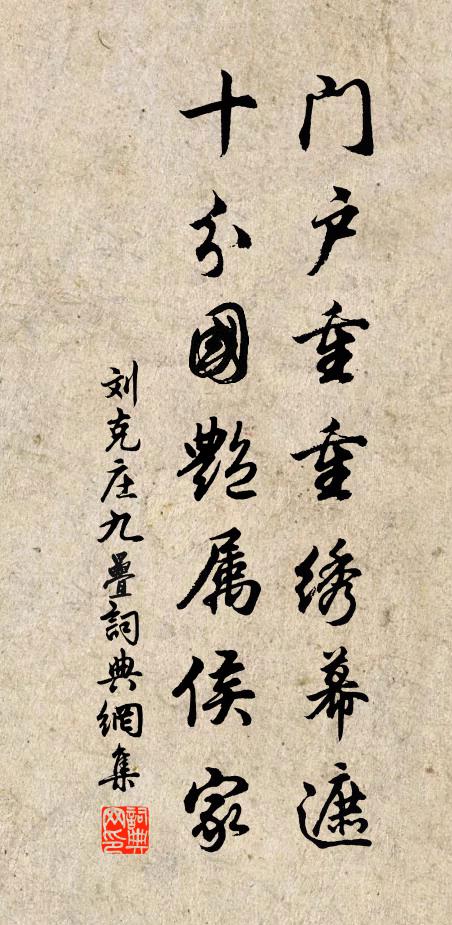 门户重重绣幕遮
十分國艳属侯家
刘克庄九疊詞典網集
詞典网印